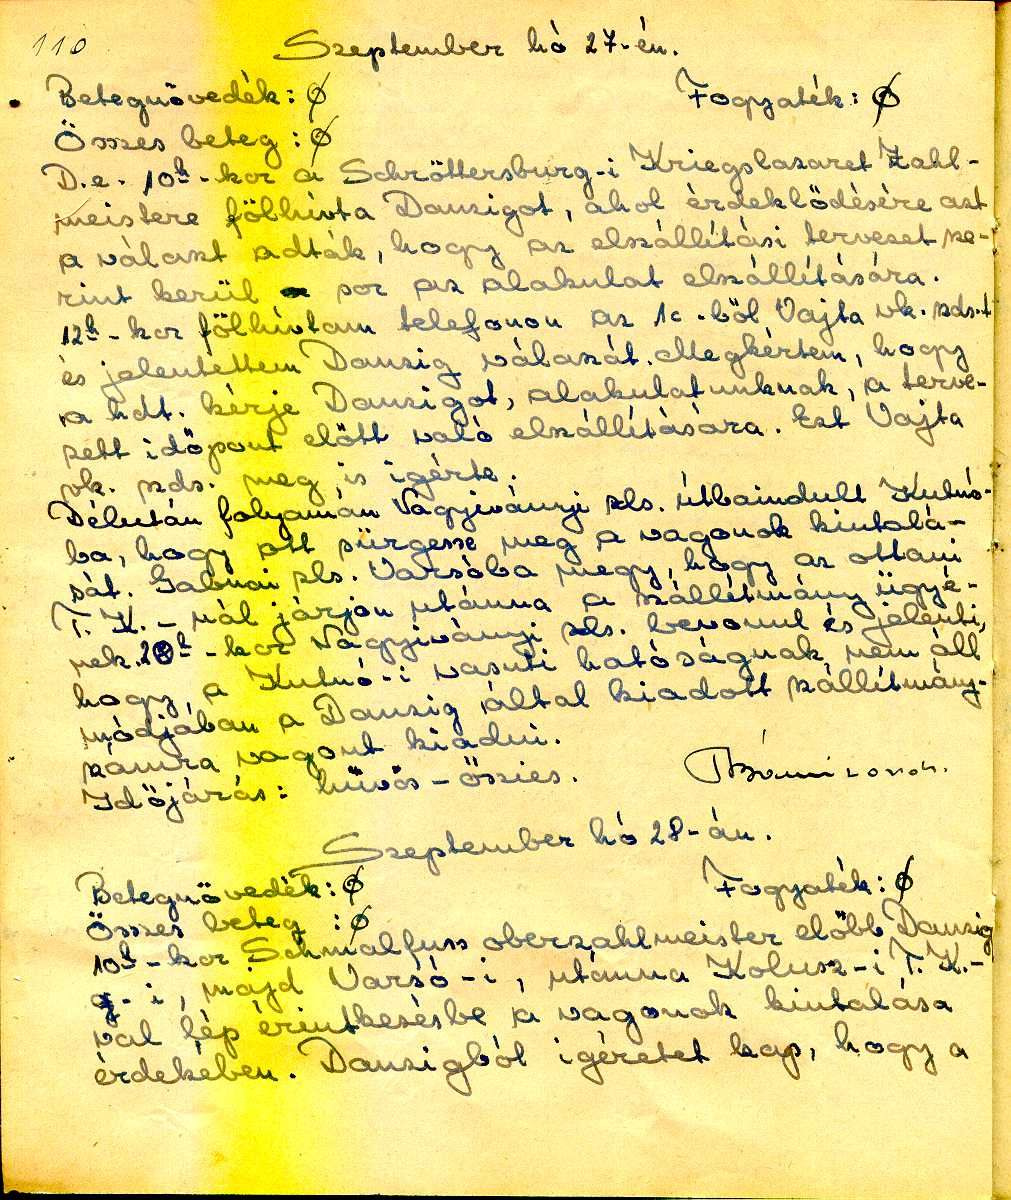 110
Szeptember hó 27-én.
Betegnövedék: ∅ Fogyaték: ∅
Összes beteg: ∅
D.e. 10h-kor a Schröttersburg-i Kriegslazaret Zahl-
meistere fölhívta Danzigot, ahol érdeklődésére azt
a választ adták, hogy az elszállítási tervezet sze-
rint kerül sor az alakulat elszállítására.
12h-kor fölhívtam telefonon az 1c.-ből Vajta vk. szds.-t
és jelentettem Danzig válaszát. Megkértem, hogy
a hdt. kérje Danzigot, alakulatunknak, a terve-
zett időpont előtt való elszállítására. Ezt Vajta
vk. szds. meg is igérte.
Délután folyamán Nagyiványi zls. útbaindult Kutnó-
ba, hogy ott sürgesse meg a vagonok kiutalá-
sát. Gabnai zls. Varsóba megy, hogy az ottani
T.K.-nál járjon utánna a szállítmány ügyé-
nek. 20h-kor Nagyiványi zls. bevonul és jelenti,
hogy a Kutnó-i vasuti hatóságnak nem áll
módjában a Danzig által kiadott szállítmány-
számra vagont kiadni.
Időjárás: hűvös-őszies.
Szeptember hó 28-án.
Betegnövedék: ∅ Fogyaték: ∅
Összes beteg: ∅
10h-kor Schmalfuss oberzahlmeister előbb Danzig
g-i, majd Varsó-i, utánna Kolusz-i T.K.-
val lép érintkezésbe a vagonok kiutalása
érdekében. Danzigból igéretet kap, hogy a